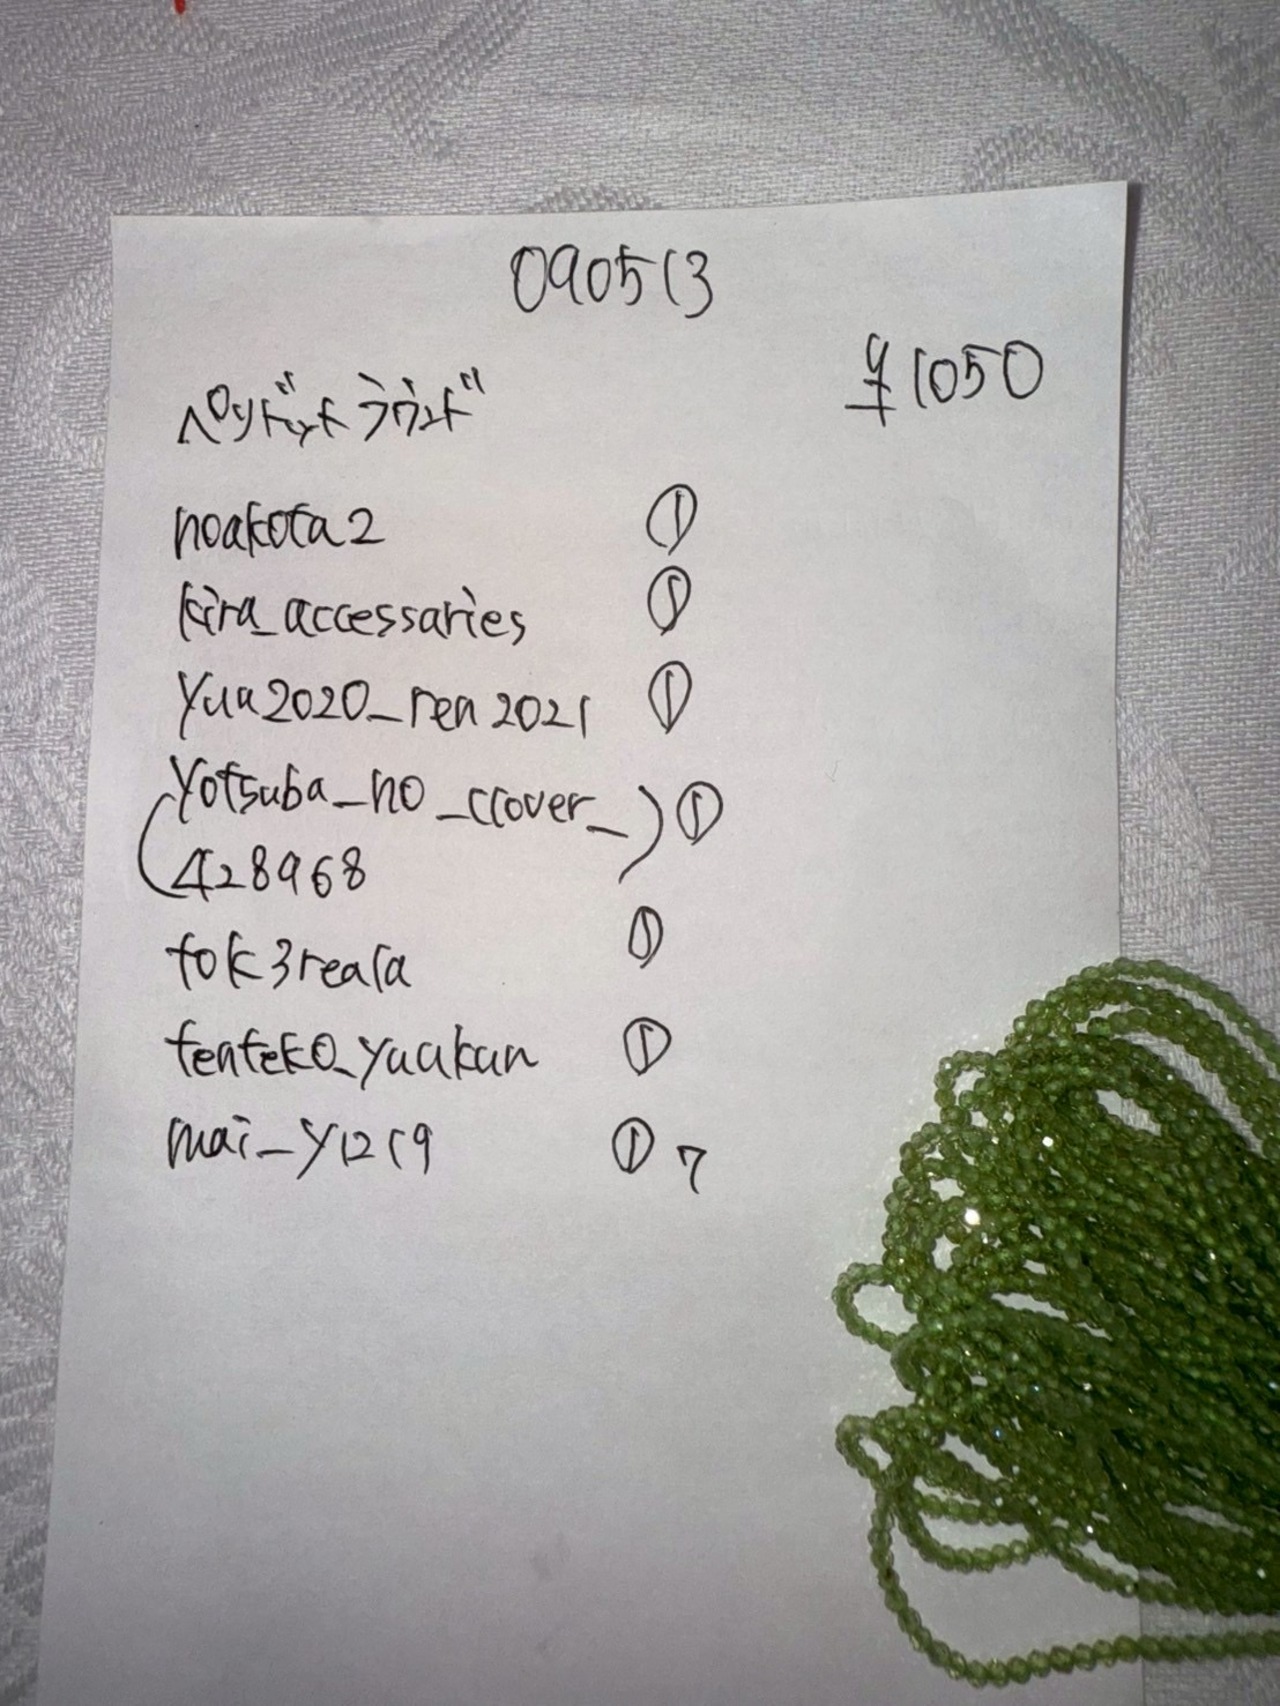 090513
¥1050
ペリドットラウンド
noakota2 ①
kira_accessaries ①
yuu2020_ren2021 ①
(yotsuba_no_clover_
428968) ①
tok3reala ①
tenteko_yuukun ①
mai_y1219 ① 7